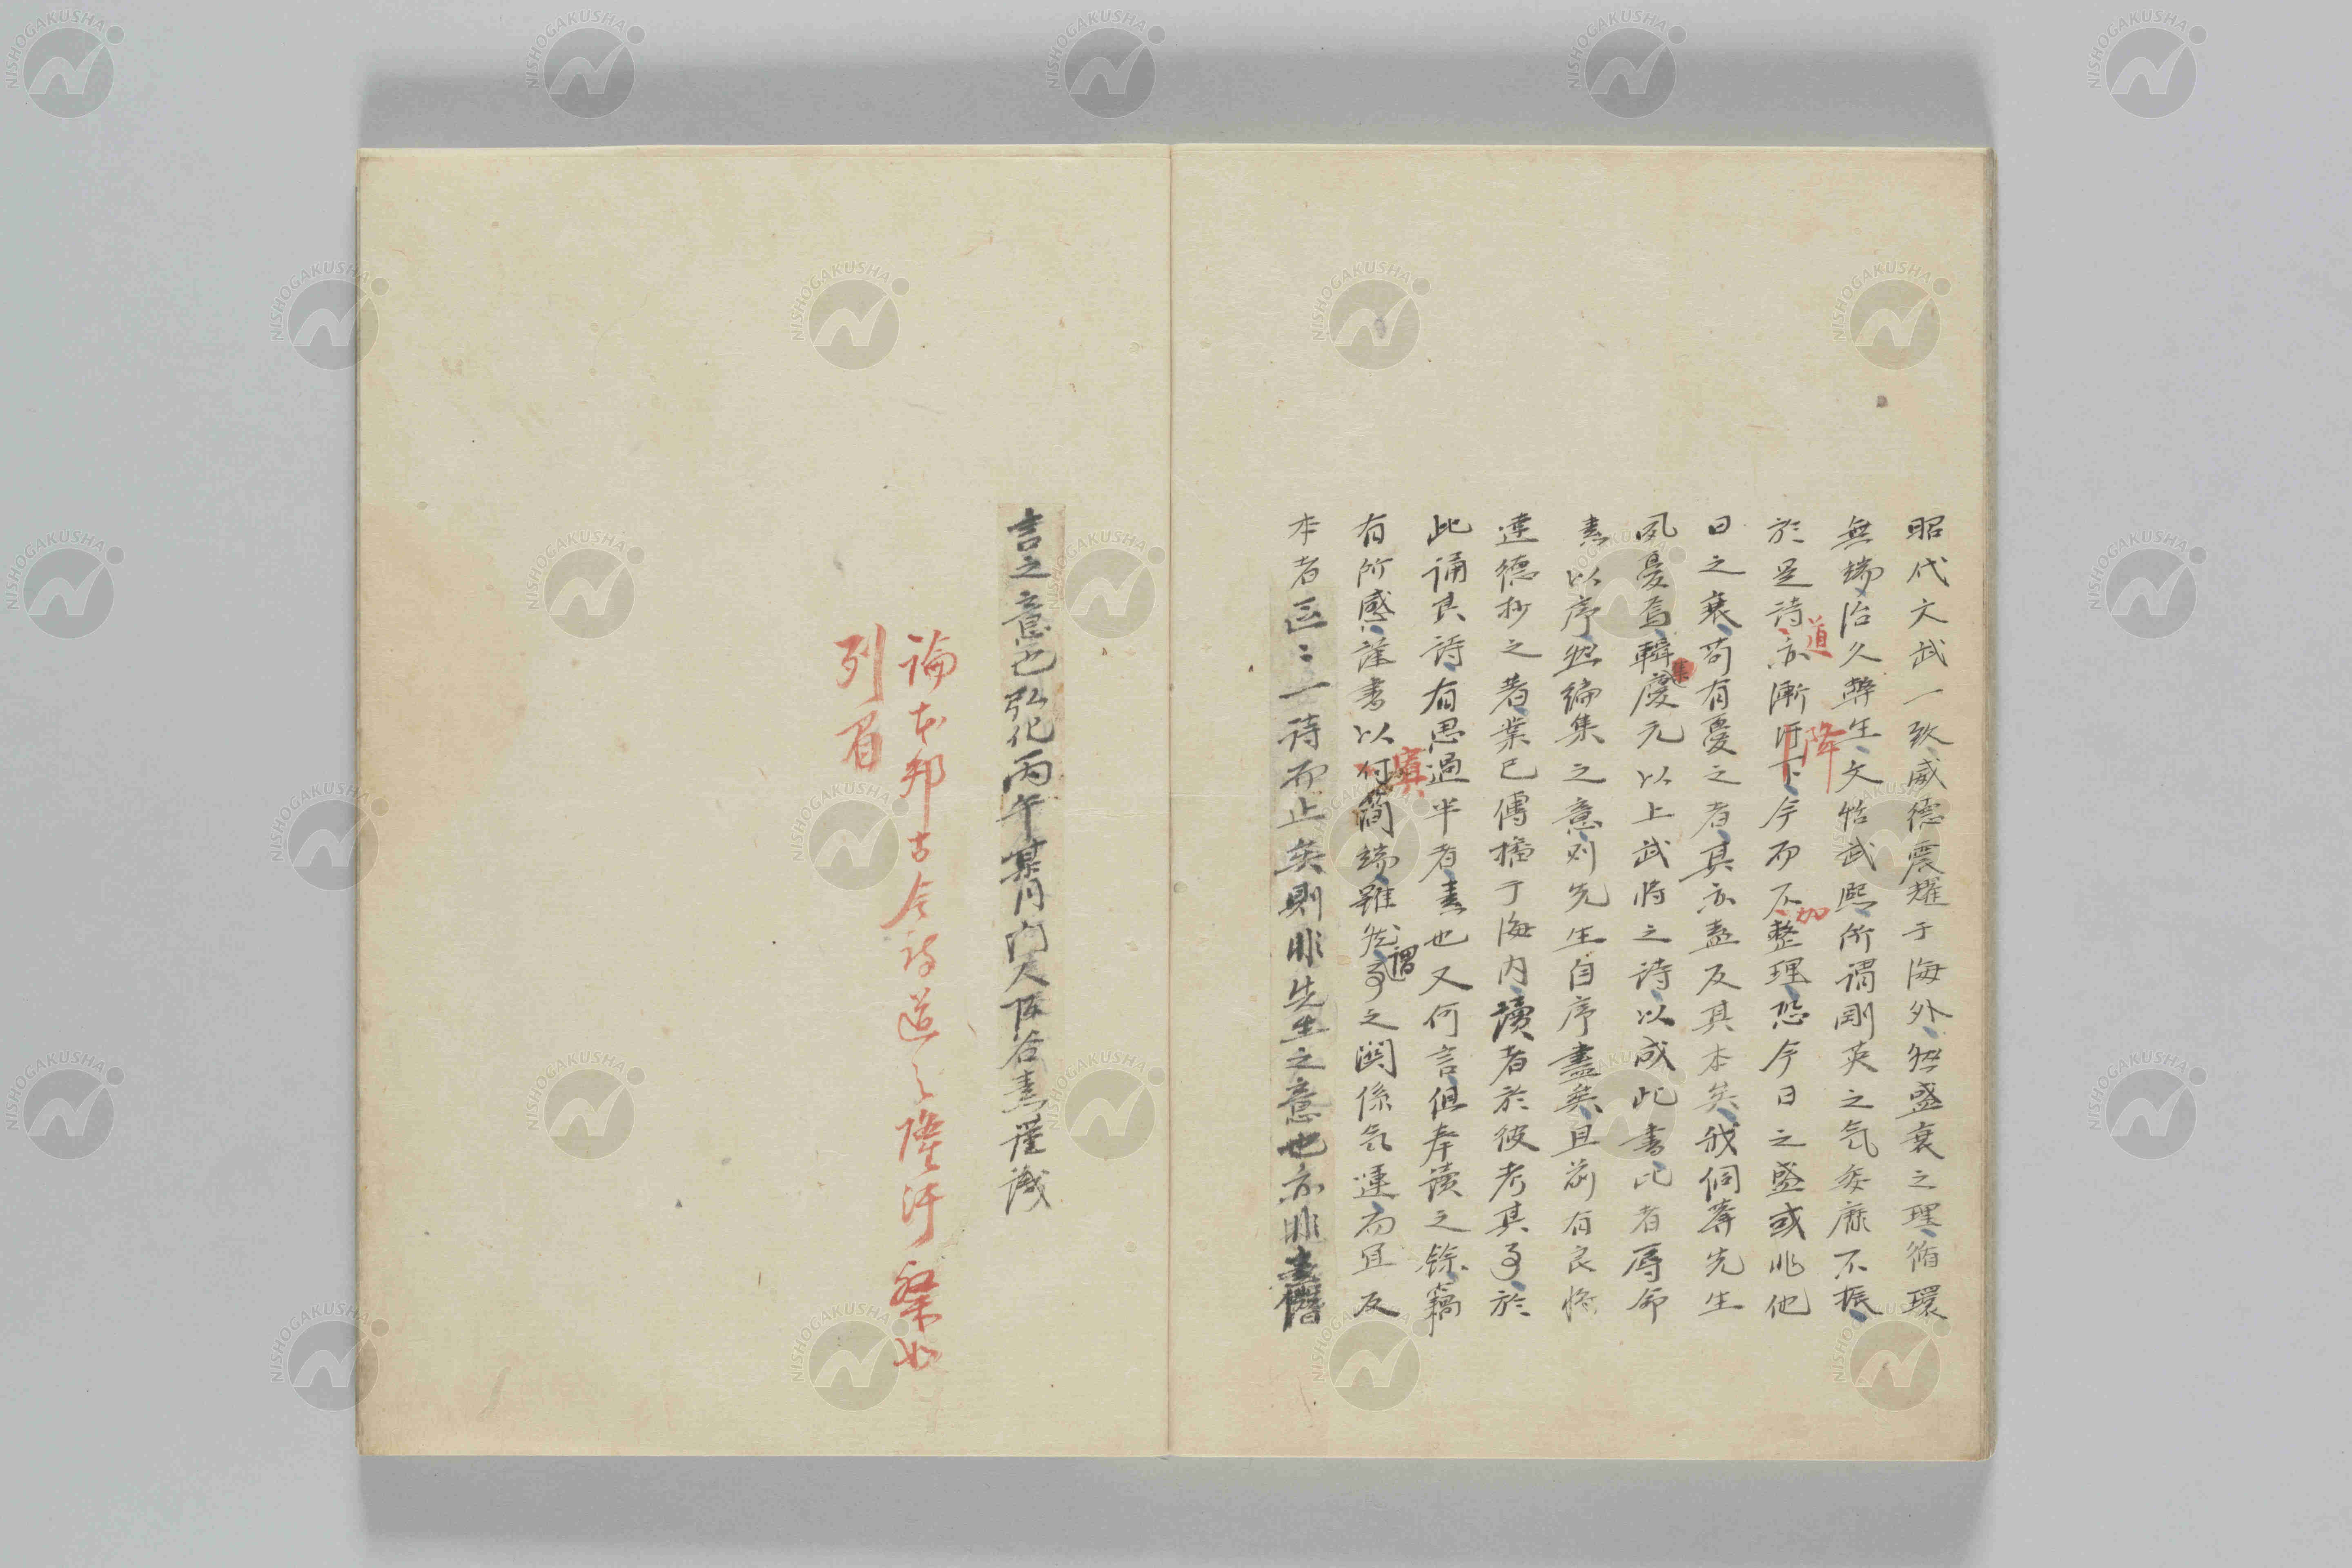 昭代文武一致威德震耀于海外然盛衰之理循環
無端治久弊生文恬武熙所謂剛英之氣委靡不振
於是詩道亦漸降下今而不加整理恐今日之盛或兆他
日之衰苟有憂之者其亦盍反其本矣我侗菴先生
夙憂焉輯慶元以上武将之詩以成此書此者辱命
以序然編集之意則先生自序盡矣且前有良将
達德抄之著業已傳播于海内讀者於彼考其事於
此誦其詩有思過半者也又何言但奉讀之餘竊
有所感謹書以簡端雖然事之関係氣運而且反
本者区〻一詩而止矣則非先生之意也亦非
言之意也弘化丙午某月門人谷謹識
論本邦古今詩道之隆汙粲如
列眉
NISHOGAKUSHA